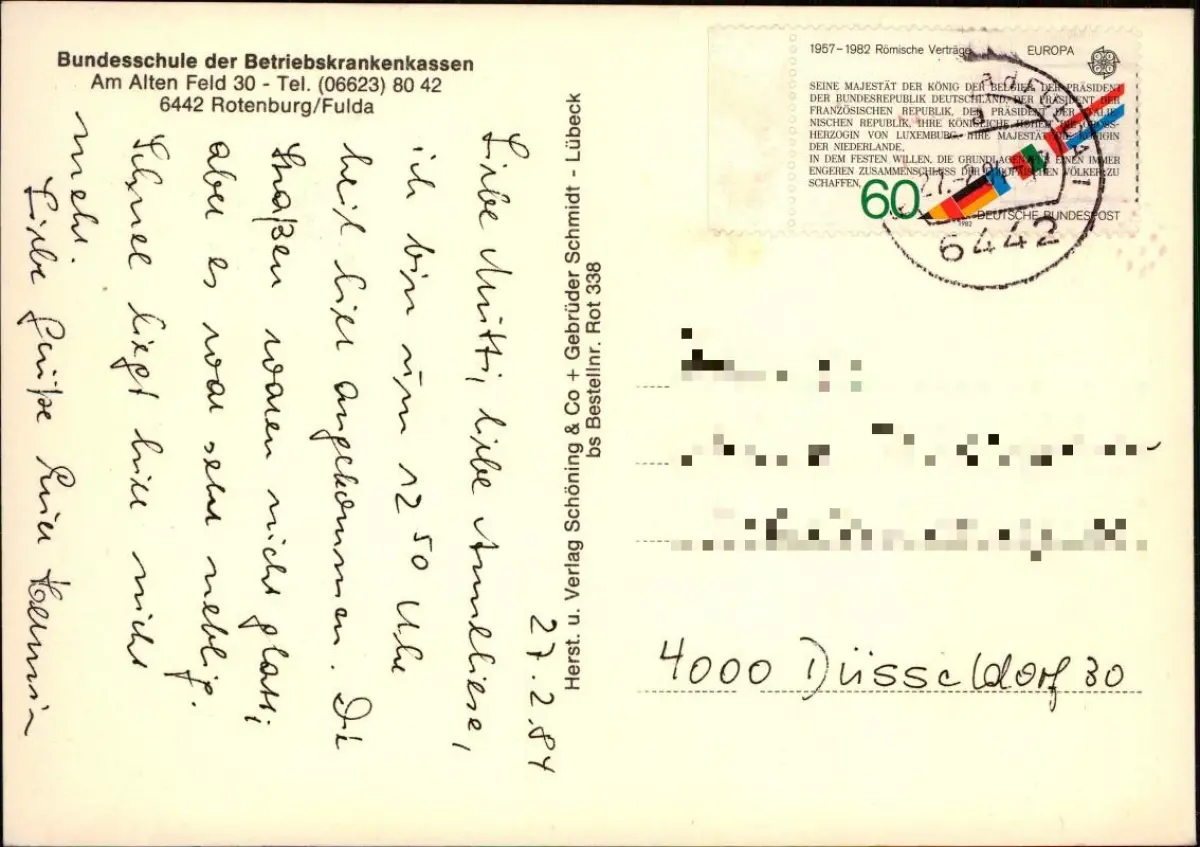 Bundesschule der Betriebskrankenkassen
Am Alten Feld 30 - Tel. (06623) 80 42
6442 Rotenburg/Fulda
27.2.84
Liebe Mutti, liebe Anneliese,
ich bin um 12 50 Uhr
heil hier angekommen. Die
Straßen waren nicht glatt;
aber es war sehr neblig.
Schnee liegt hier nicht
mehr.
Liebe Grüße Euer
Herst. u. Verlag Schöning & Co + Gebrüder Schmidt - Lübeck
bs Bestellnr. Rot 338
1957-1982 Römische Verträge
EUROPA
SEINE MAJESTÄT DER KÖNIG DER BELGIER, DER PRÄSIDENT
DER BUNDESREPUBLIK DEUTSCHLAND, DER PRÄSIDENT DER
FRANZÖSISCHEN REPUBLIK, DER PRÄSIDENT DER ITALIE-
NISCHEN REPUBLIK, IHRE KÖNIGLICHE HOHEIT DIE GROSS-
HERZOGIN VON LUXEMBURG, IHRE MAJESTÄT DIE KÖNIGIN
DER NIEDERLANDE,
IN DEM FESTEN WILLEN, DIE GRUNDLAGEN FÜR EINEN IMMER
ENGEREN ZUSAMMENSCHLUSS DER EUROPÄISCHEN VÖLKER ZU
SCHAFFEN,
60
1982
DEUTSCHE BUNDESPOST
6442
4000 Düsseldorf 30